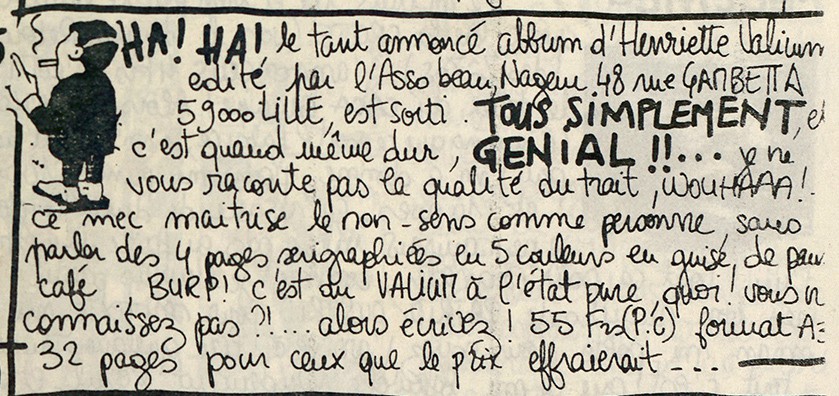 HA! HA! le tant annoncé album d'Henriette Valium
edité par l'Asso beau, Nageu 48 rue GAMBETTA
59000 LILLE, est sorti. TOUS SIMPLEMENT, et
c'est quand même dur, GENIAL !!... je ne
vous raconte pas la qualité du trait, WOUHAAA!
ce mec maitrise le non-sens comme personne, sans
parler des 4 pages serigraphiées en 5 couleurs en guise, de
café, BURP! c'est du VALIUM à l'état pure, quoi! vous
connaissez pas ?!.... alors écrivez! 55 Frs (P.C) format
32 pages pour ceux que le prix effraierait ---